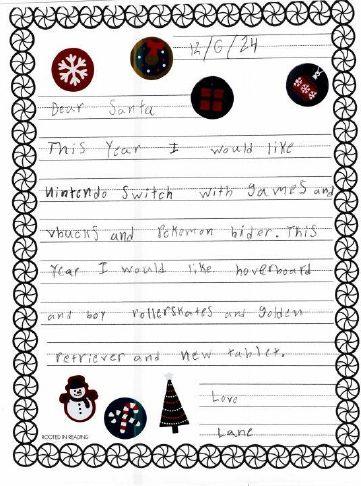 12/6/24
Dear Santa
This Year I would like
Nintendo Switch with games and
vbucks and Pokemon bider. This
Year I would like hoverboard
and boy rollerskates and golden
retriever and new tablet.
Love
Lane
ROOTED IN READING